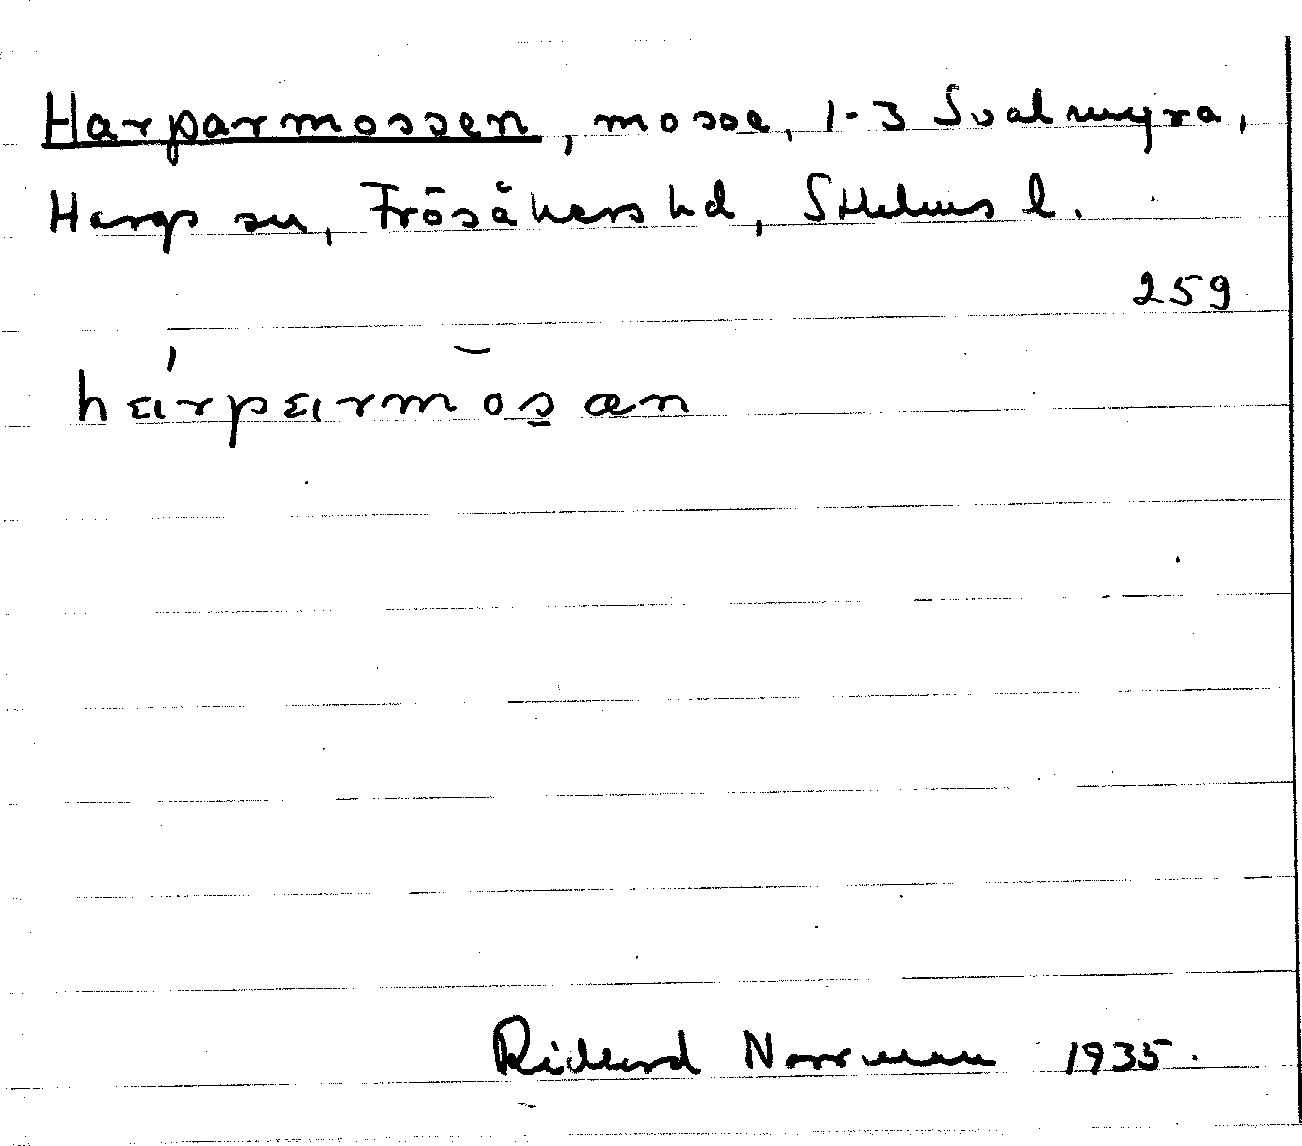 Harparmossen, mosse, 1-3 Svalmyra,
Hargs sn, Frösåkers hd, Sthlms l.
259
hɑrpɑrmŏs̲æn
Rickard Norrman 1935.